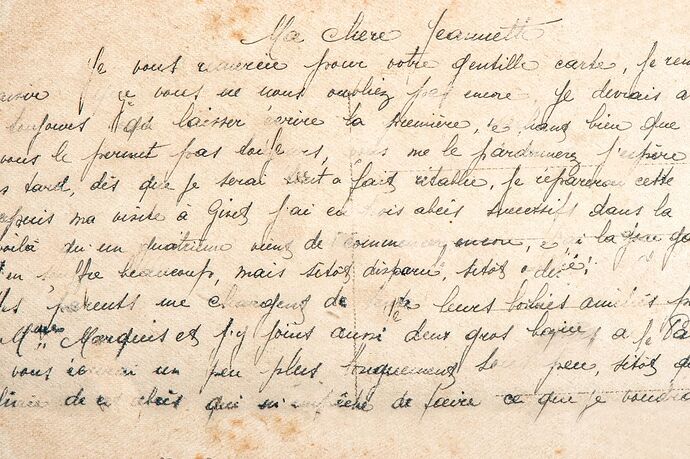 Ma chère Jeannette
Je vous remercie pour votre gentille carte, je
vous ne nous oubliez pas encore, je devrais
toujours laisser écrire la première, bien que
vous le permet pas toujours, vous me le pardonnerez j'espère
tard, dès que je serai tout à fait rétablie, je réparerai cette
depuis ma visite à Givet j'ai eu trois abcès successifs dans la
voilà qu'un quatrième vient de commencer encore, j'ai la
beaucoup, mais sitôt disparu, sitôt
parents me chargent de leurs bonnes amitiés
Mme Marquiset j'y joins aussi deux gros
vous un peu plus longuement peu, sitôt
de ces abcès qui m'empêche de faire ce que je